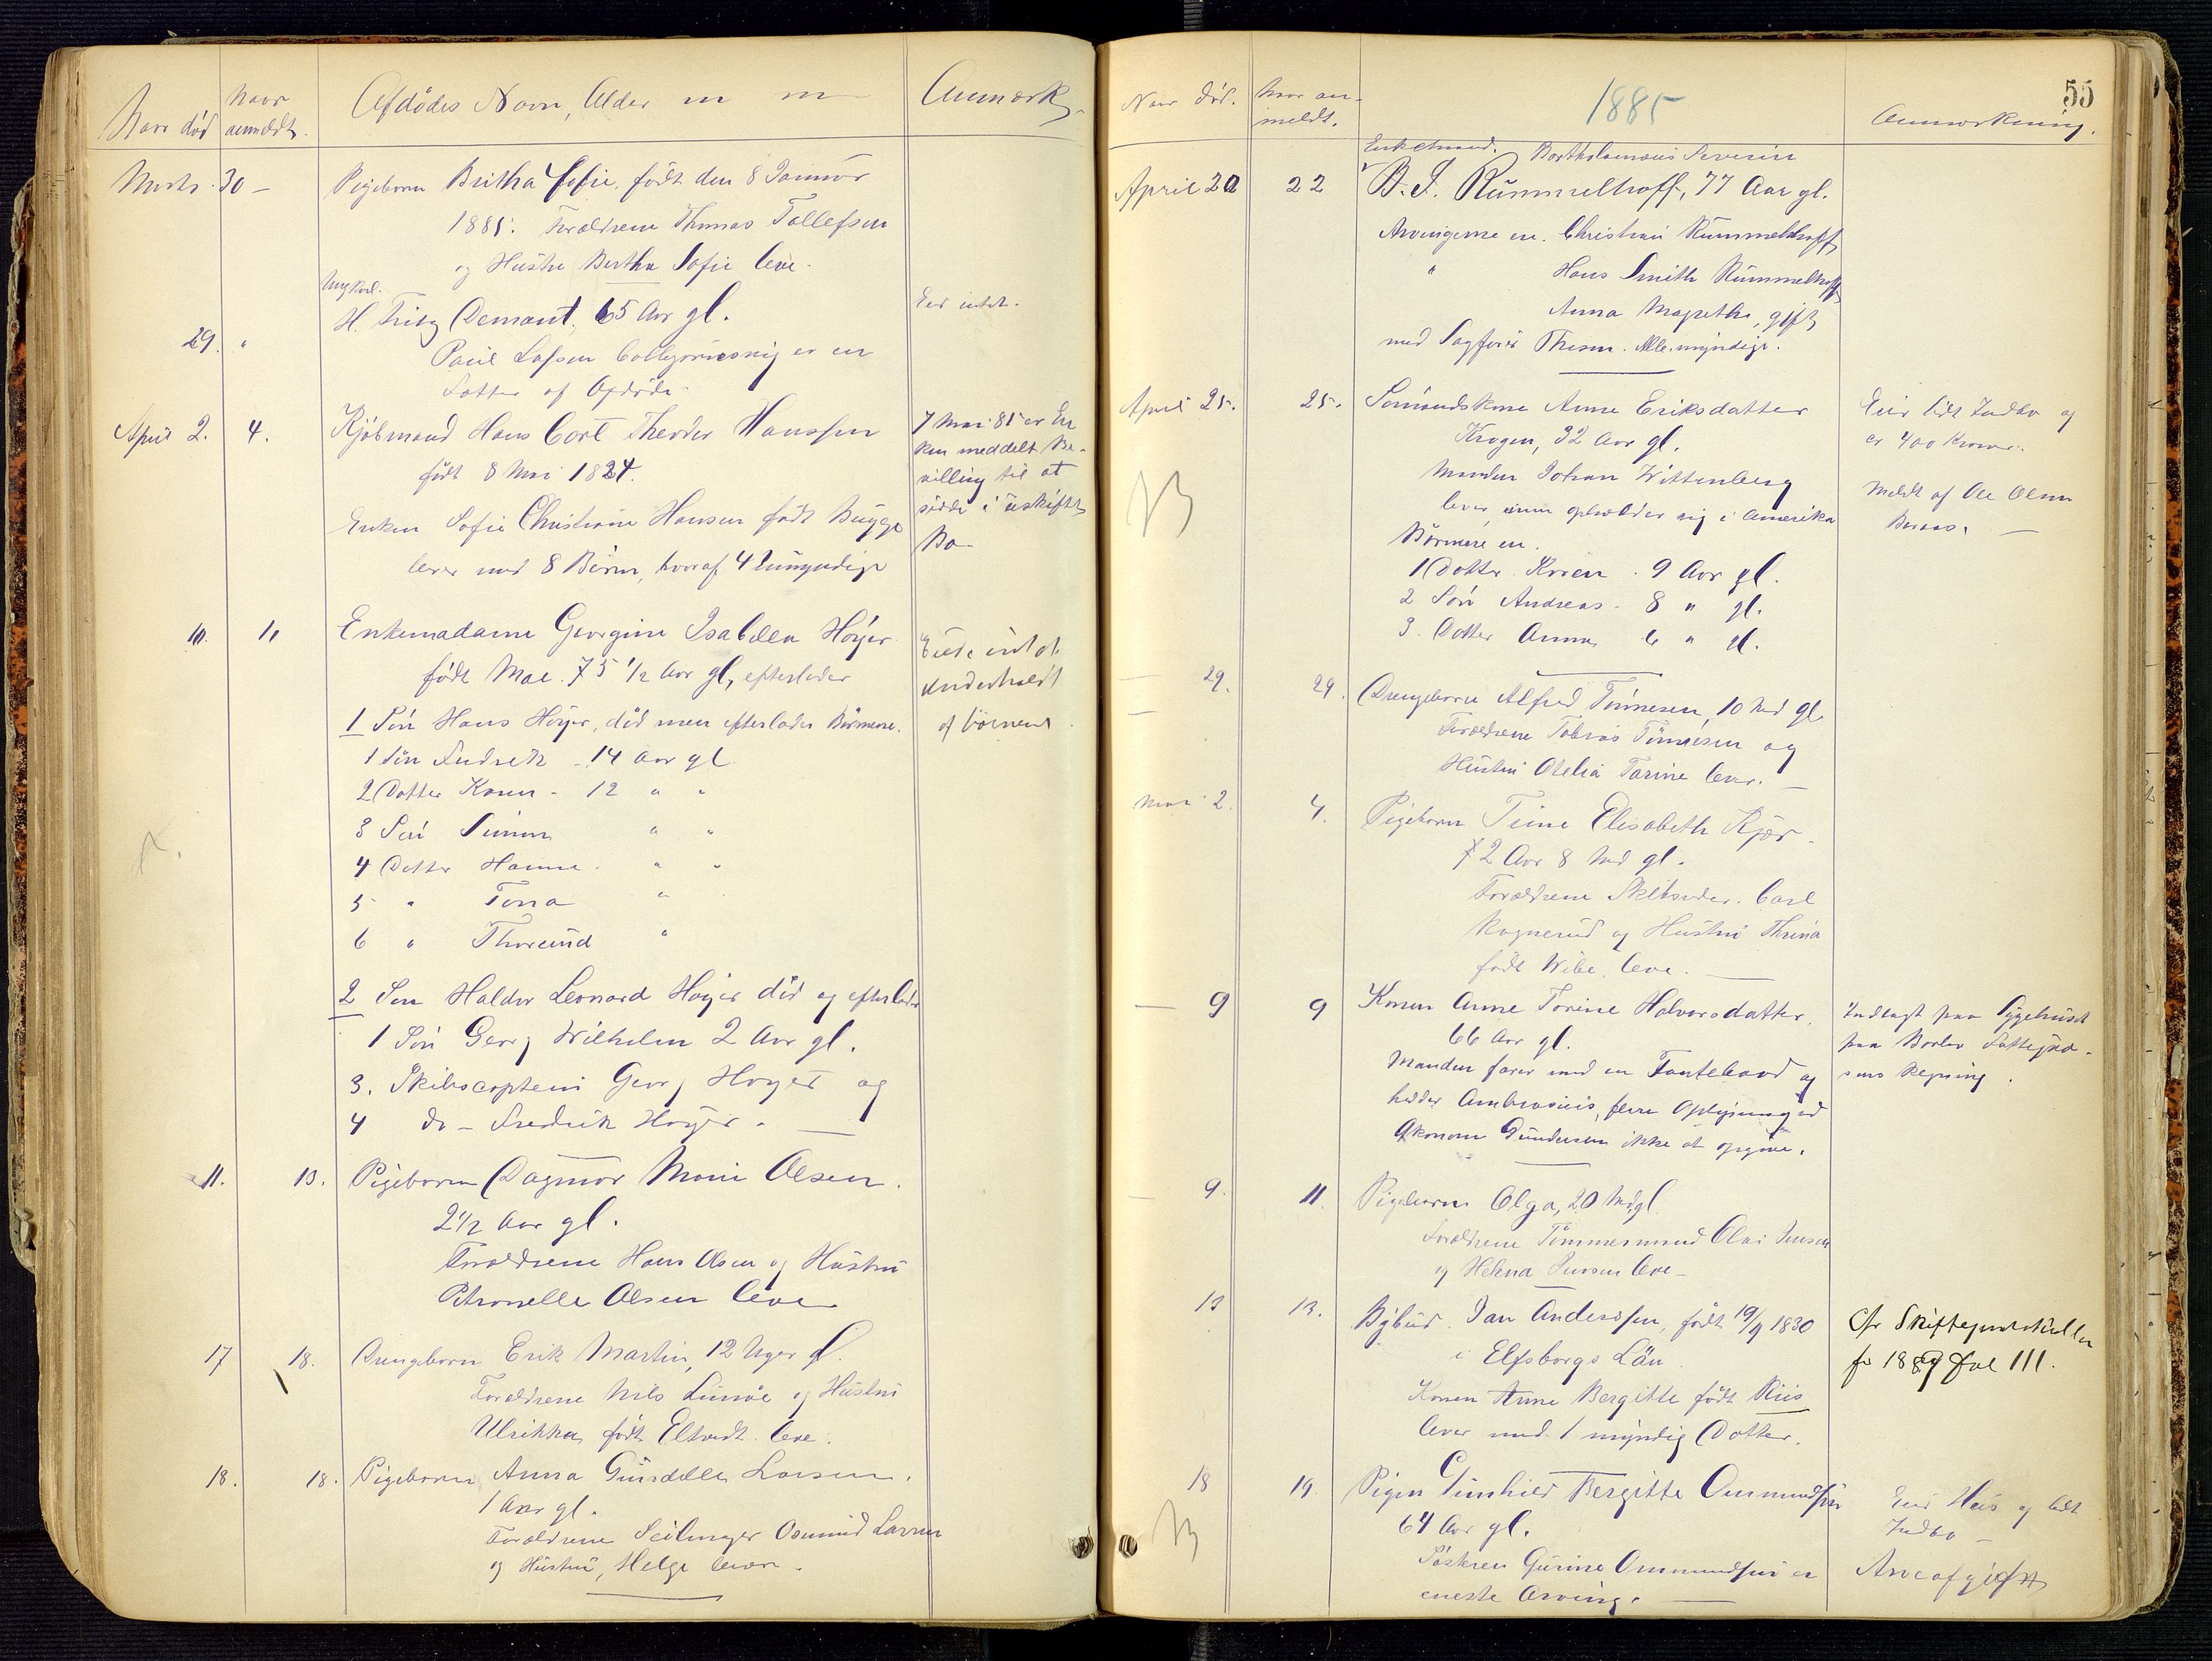 Naar død
Naar anmeldt.
Afdødes Navn, Alder m m
Anmærk.
Marts 30 –
Pigebarn Britha Sofie, født den 8 Januar
1885. Forældrene Thomas Tollefsen
og Hustru Bertha Sofie leve.
Ungkarl.
29. "
H. Fritz Demant, 65 Aar gl.
Eier intet.
Søster af Afdøde
April 2. 4.
Kjøbmand Hans Cort Theodor Hanssen
født 8 Mai 1824.
Enken Sofie Christiane Hansen født Bugge
lever med 8 Børn, hvoraf 4 umyndige
7 Mai 85 er En
ken meddelt Be-
villing til at
sidde i uskiftet
Bo
10. 11
Enkemadame Georgine Isabella Høyer
født Moe. 75 1/2 Aar gl, efterlader
Eiede intet
underholdt
af børnene
1 Søn Hans Høyer, død men efterlader Børnene.
1 Søn Fredrik – 14 Aar gl
2 Datter Karen – 12 " "
3 Søn Simon " "
4 Datter Hanne. " "
5 " Tora "
6 " "
2 Søn Halvor Leonard Høyer død og efterlader
1 Søn Georg Wilhelm 2 Aar gl.
3. Skibscaptein Georg Høyer og
4 do – Fredrik Høyer. —
11. 13.
Pigebarn Dagmar Marie Olsen.
2 1/2 Aar gl.
Forældrene Hans Olsen og Hustru
Petronelle Olsen leve
17 18.
Drengebarn Erik Martin, 12 Uger gl.
Forældrene Nils og Hustru
Ulrikka født Eltvedt leve.
18. 18.
Pigebarn Anna Larsen.
1 Aar gl.
Forældrene Seilmager Osmund Larsen
og Hustru, Helge lever.
55
Naar død.
Naar an-
meldt.
1885
Anmærkning.
Enkemand. Bartholomæus Severin
April 20 22
B. S. Rummelhoff, 77 Aar gl.
Arvingerne ere. Christian Rummelhoff
" Hans Smith Rummelhoff
Anna Magrethe, gift
med Sagfører Thesen. Alle myndige.
April 25. 25.
Sømandskone Anne Eriksdatter
Krogen, 32 Aar gl.
Manden Johan Wittenberg
lever, men opholder sig i Amerika
Børnene ere.
1 Datter Karen. 9 Aar gl.
2 Søn Andreas – 8 " gl.
3. Datter Anna 6 " gl.
Eier lidt Indbo og
ca 400 Kroner.
Meldt af Ole Olsen
B
— 29. 29.
Drengebarn Alfred Tønnesen, 10 Md gl
Forældrene Tobias Tønnesen og
Hustru Otelia Tarine lever. —
Mai 2. 4.
Pigebarn Elisabeth Kjær
2 Aar 8 Md gl.
Forældrene Skibsreder. Carl
og Hustru
født Wibe. leve. —
— 9 9
Konen Anne Torine Halvorsdatter,
66 Aar gl.
Manden farer med en Fantebaad og
hedder Ambrosius, flere Oplysninger
Økonom Gundersen ikke at opgive.
Indlagt paa Sygehuset
paa Fattigvæ-
sens Regning.
— 9. 11.
Pigebarn Olga, 20 Md gl
Forældrene Tømmermand Olai Jensen
og Helena Jensen leve –
13 13.
Bybud. Jan Anderssen, født 19/9 1830
i Elfsborgs Län
Konen Anne Bergitte født Riis
lever med 1 myndig Datter.
Cfr Skifteprotokollen
for 1889 Fol 111.
18 19.
Pigen Gunhild Bergitte Ommundsen
64 Aar gl.
Søsteren Gurine Ommundsen er
eneste Arving. —
Eier Hus og lidt
Indbo –
Arveafgift
B